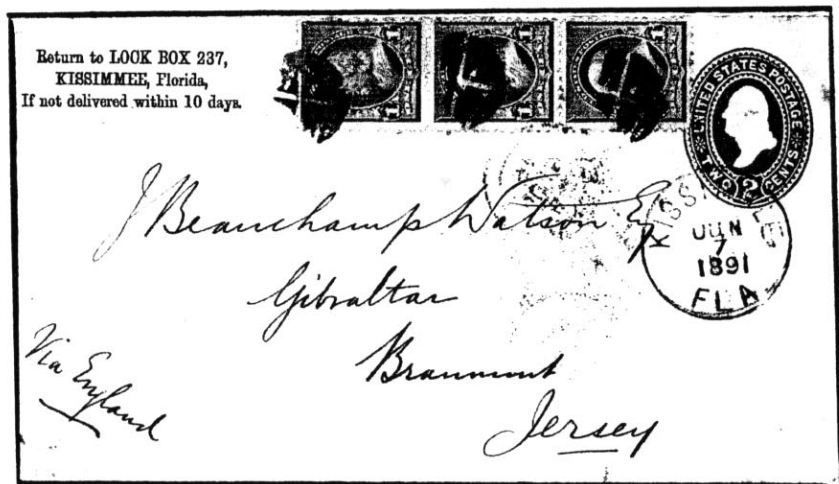 Return to LOCK BOX 237,
KISSIMMEE, Florida,
If not delivered within 10 days.
UNITED STATES POSTAGE
TWO 2 CENTS
KISSIMMEE
JUN
7
1891
FLA
J Beauchamp Watson Esq
Gibraltar
Beaumont
Jersey
Via England